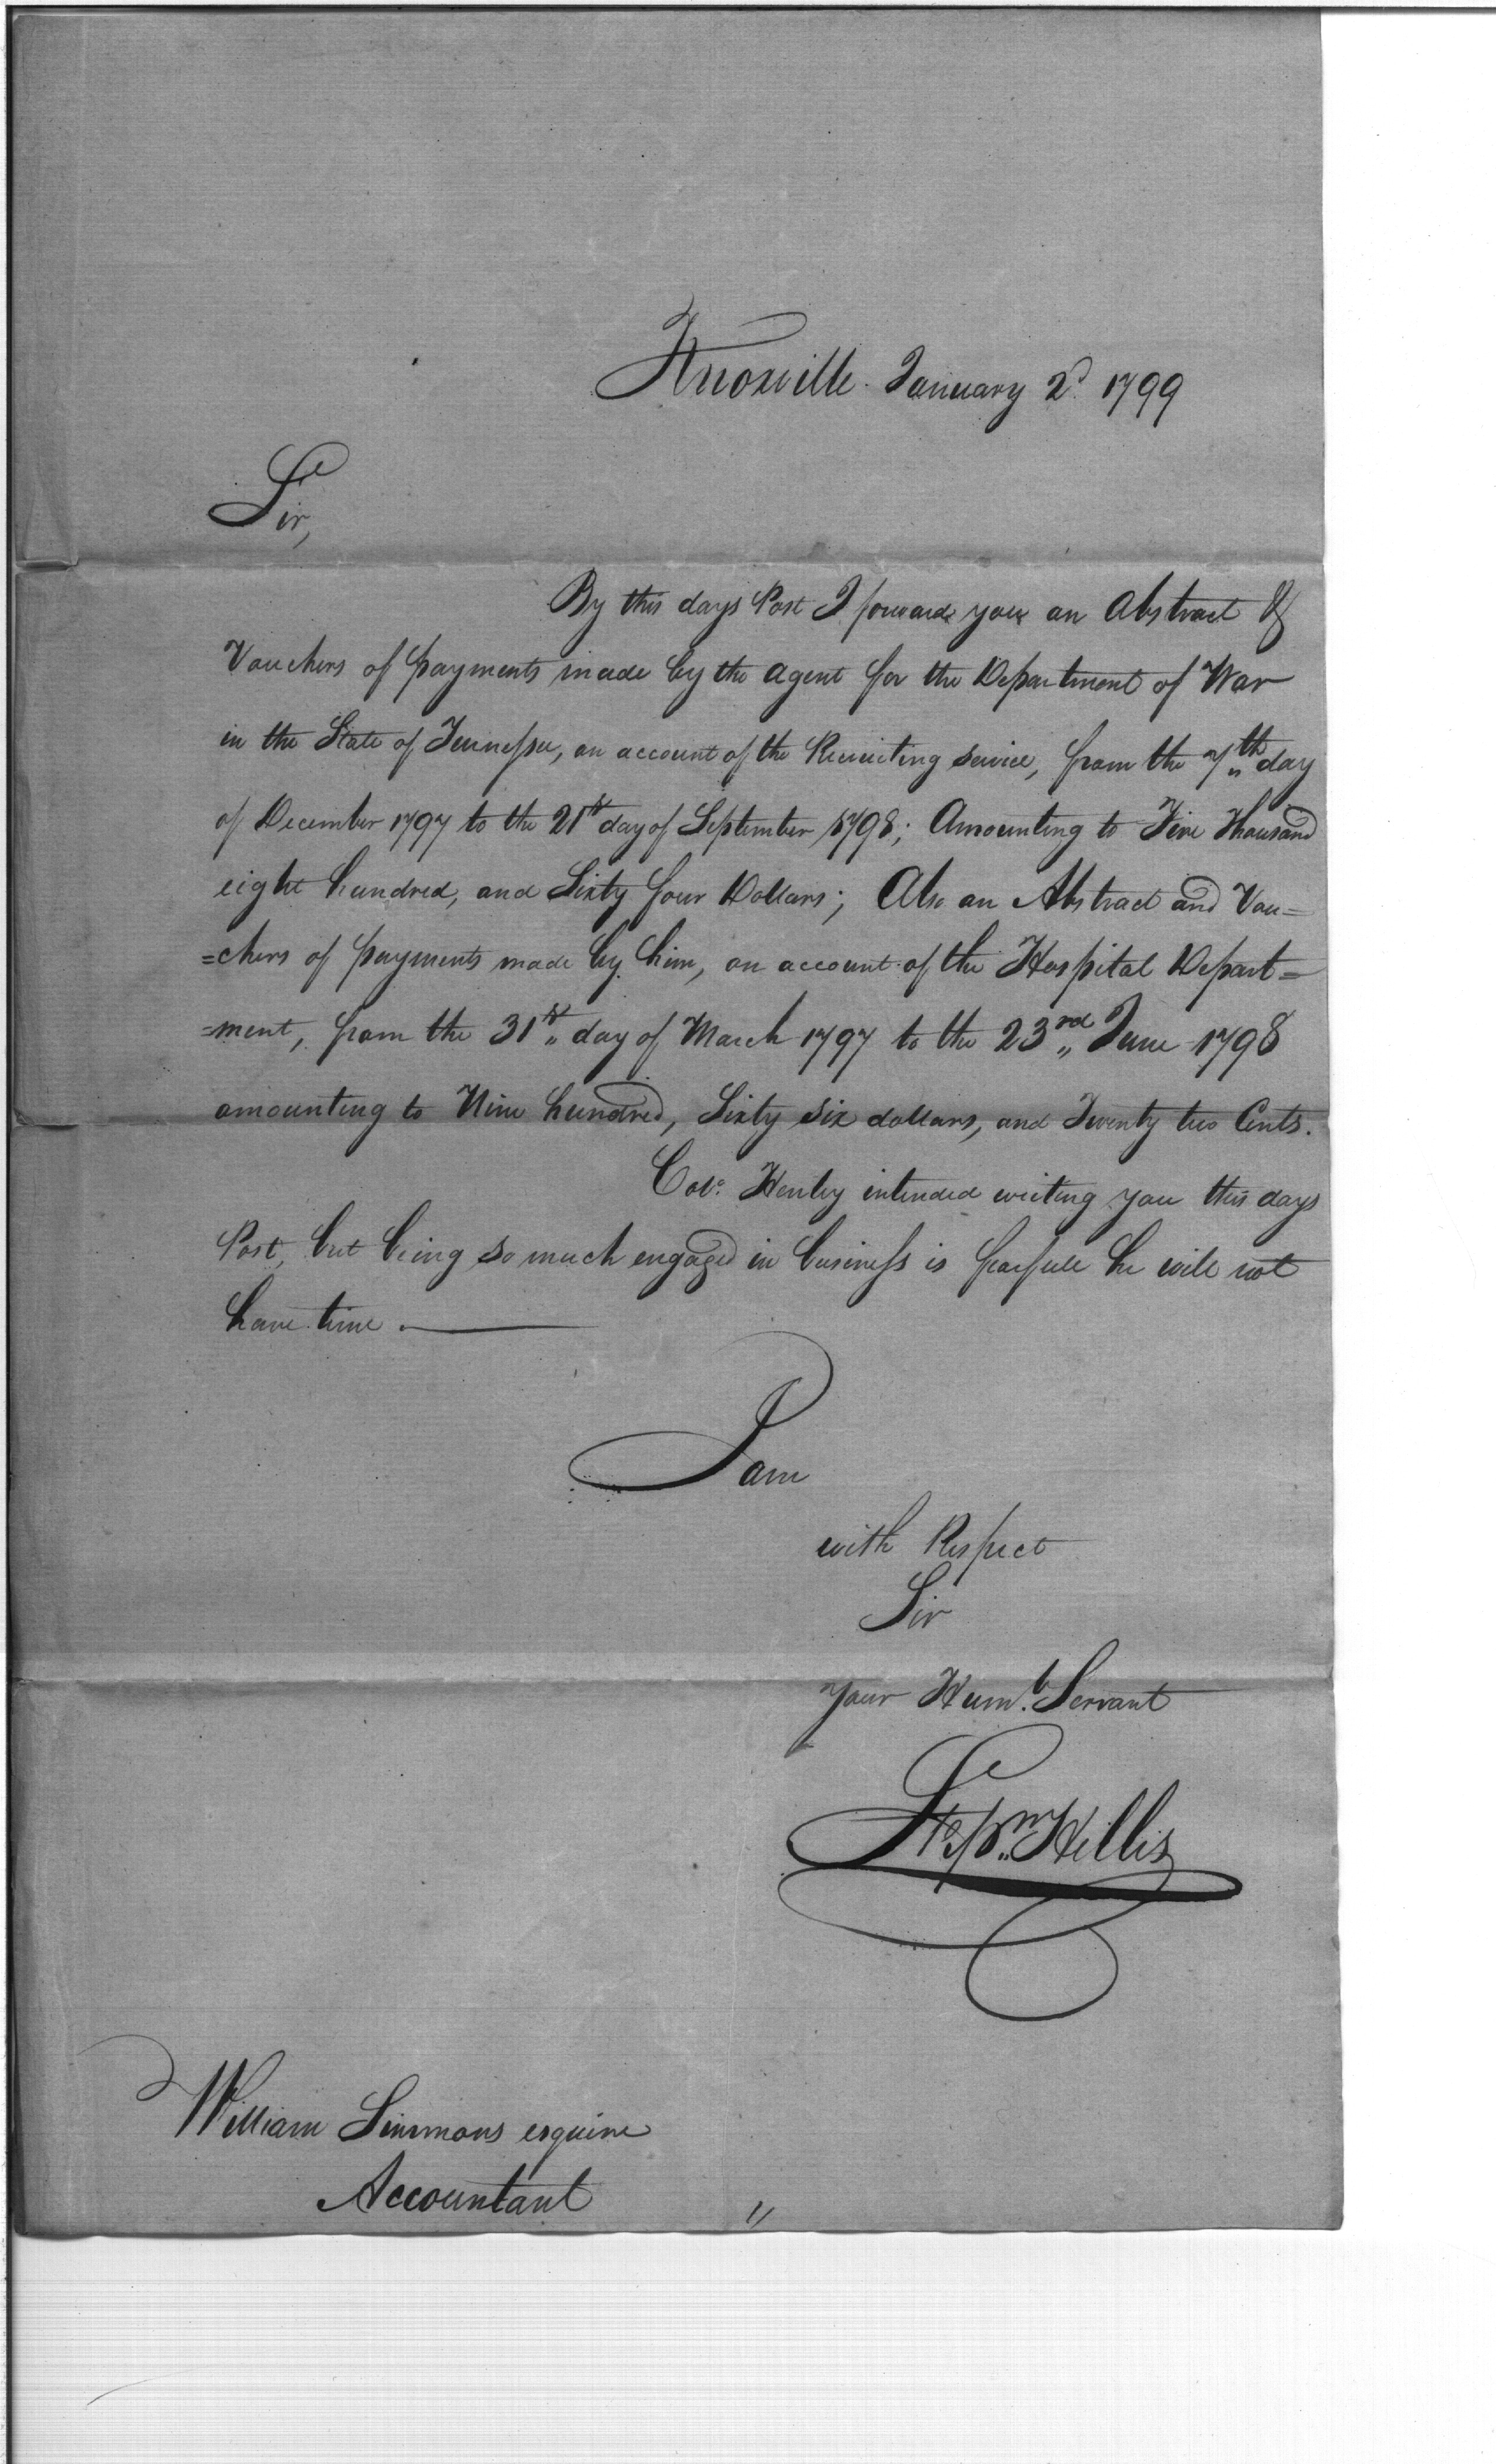 Knoxville January 2d. 1799
Sir,
By this days Post I forward you an Abstract &
Vouchers of payments made by the agent for the Department of War
in the State of Tennessee, on account of the Recruiting service, from the 7th day
of December 1797 to the 21st day of September 1798; Amounting to Five Thousand
eight hundred, and Sixty four Dollars; Also an Abstract and Vou=
=chers of payments made by him, on account of the Hospital Depart=
=ment, from the 31st day of March 1797 to the 23rd June 1798
amounting to Nine hundred, Sixty six dollars, and Twenty two Cents.
Colo. Henley intended writing you this days
Post, but being so much engaged in business is fearfull he will not
have time.
I am
with Respect
Sir
your Humb. Servant
Stepn. Hillis
William Simmons esquire
Accountant